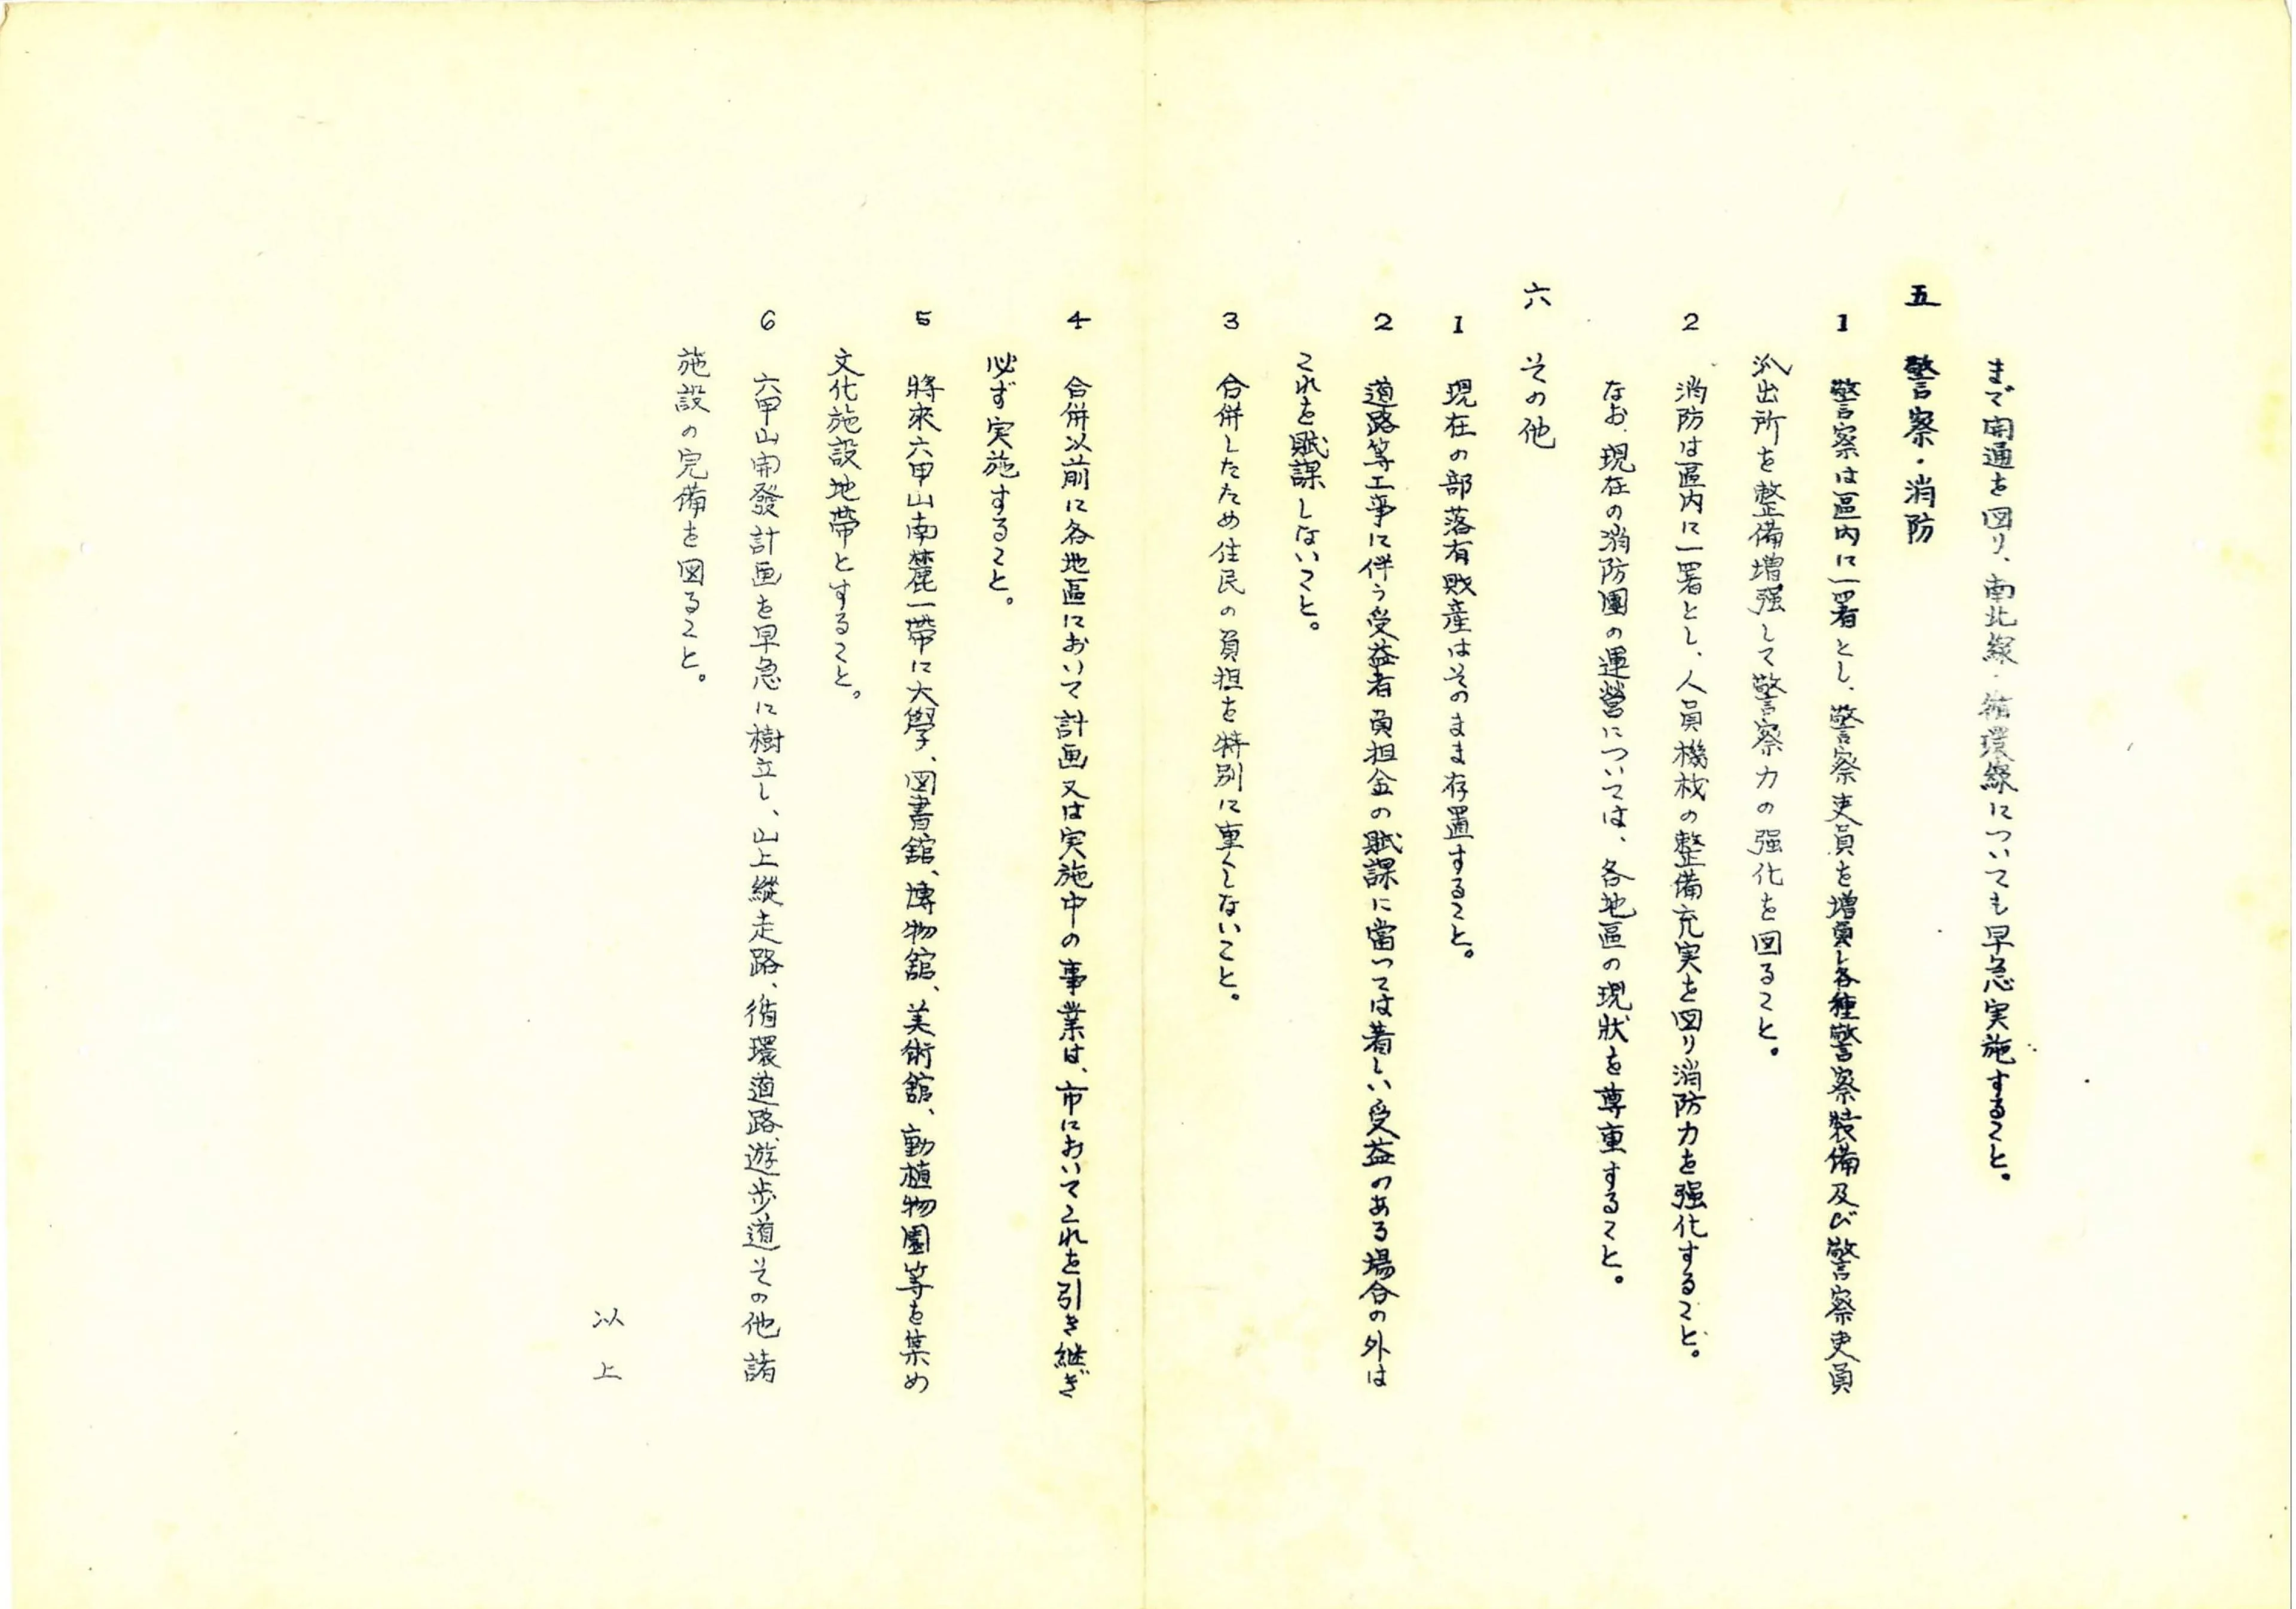 まで開通を図り、南北線・循環線についても早急実施すること。
五 警察・消防
1 警察は區内に一署とし、警察吏員を増員し各種警察装備及び警察吏員
派出所を整備増强して警察力の强化を図ること。
2 消防は區内に一署とし、人員機材の整備充実を図り消防力を强化すること。
なお、現在の消防團の運營については、各地區の現狀を尊重すること。
六 その他
1 現在の部落有財産はそのまま存置すること。
2 道路等工事に伴う受益者負担金の賦課に當つては著しい受益のある場合の外は
これを賦課しないこと。
3 合併したため住民の負担を特別に重くしないこと。
4 合併以前に各地區において計画又は実施中の事業は、市においてこれを引き継ぎ
必ず実施すること。
5 將來六甲山南麓一帶に大學、図書舘、博物舘、美術舘、動植物園等を集め
文化施設地帶とすること。
6 六甲山開發計画を早急に樹立し、山上縱走路、循環道路、遊歩道その他諸
施設の完備を図ること。
以上